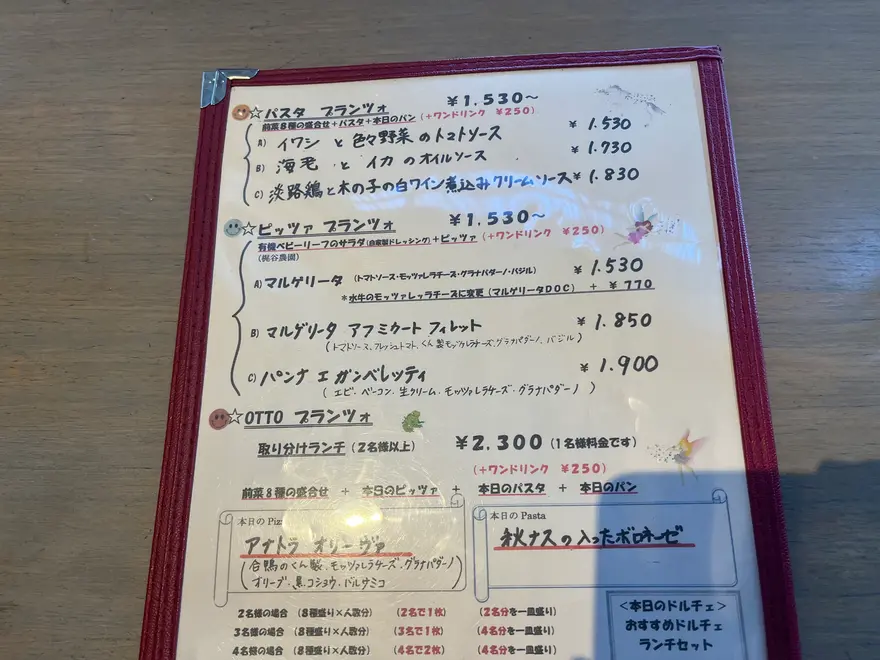 ☆パスタ プランツォ ¥1.530〜
前菜8種の盛合せ+パスタ+本日のパン (+ワンドリンク ¥250)
A) イワシ と 色々野菜 のトマトソース ¥1.530
B) 海老 と イカ のオイルソース ¥1.730
C) 淡路鶏と木の子の白ワイン煮込みクリームソース ¥1.830
☆ピッツァ プランツォ ¥1.530〜
有機ベビーリーフのサラダ(自家製ドレッシング)+ピッツァ (+ワンドリンク ¥250)
(梶谷農園)
A) マルゲリータ (トマトソース・モッツァレラチーズ・グラナパダーノ・バジル) ¥1.530
*水牛のモッツァレッラチーズに変更(マルゲリータDOC) + ¥770
B) マルゲリータ アフミカート フィレット ¥1.850
(トマトソース、フレッシュトマト、くん製モッツァレラチーズ、グラナパダーノ、バジル)
C) パンナ エ ガンベレッティ ¥1.900
(エビ・ベーコン・生クリーム・モッツァレラチーズ・グラナパダーノ)
☆OTTO プランツォ
取り分けランチ(2名様以上) ¥2.300(1名様料金です)
(+ワンドリンク ¥250)
前菜8種の盛合せ + 本日のピッツァ + 本日のパスタ + 本日のパン
本日のPiz
アナトラ オリーヴァ
(合鴨のくん製、モッツァレラチーズ・グラナパダーノ
オリーブ・黒コショウ・バルサミコ)
本日のPasta
秋ナスの入ったボロネーゼ
2名様の場合 (8種盛り×人数分) (2名で1枚) (2名分を一皿盛り)
3名様の場合 (8種盛り×人数分) (3名で1枚) (4名分を一皿盛り)
4名様の場合 (8種盛り×人数分) (4名で2枚) (4名分を一皿盛り)
<本日のドルチェ>
おすすめドルチェ
ランチセット